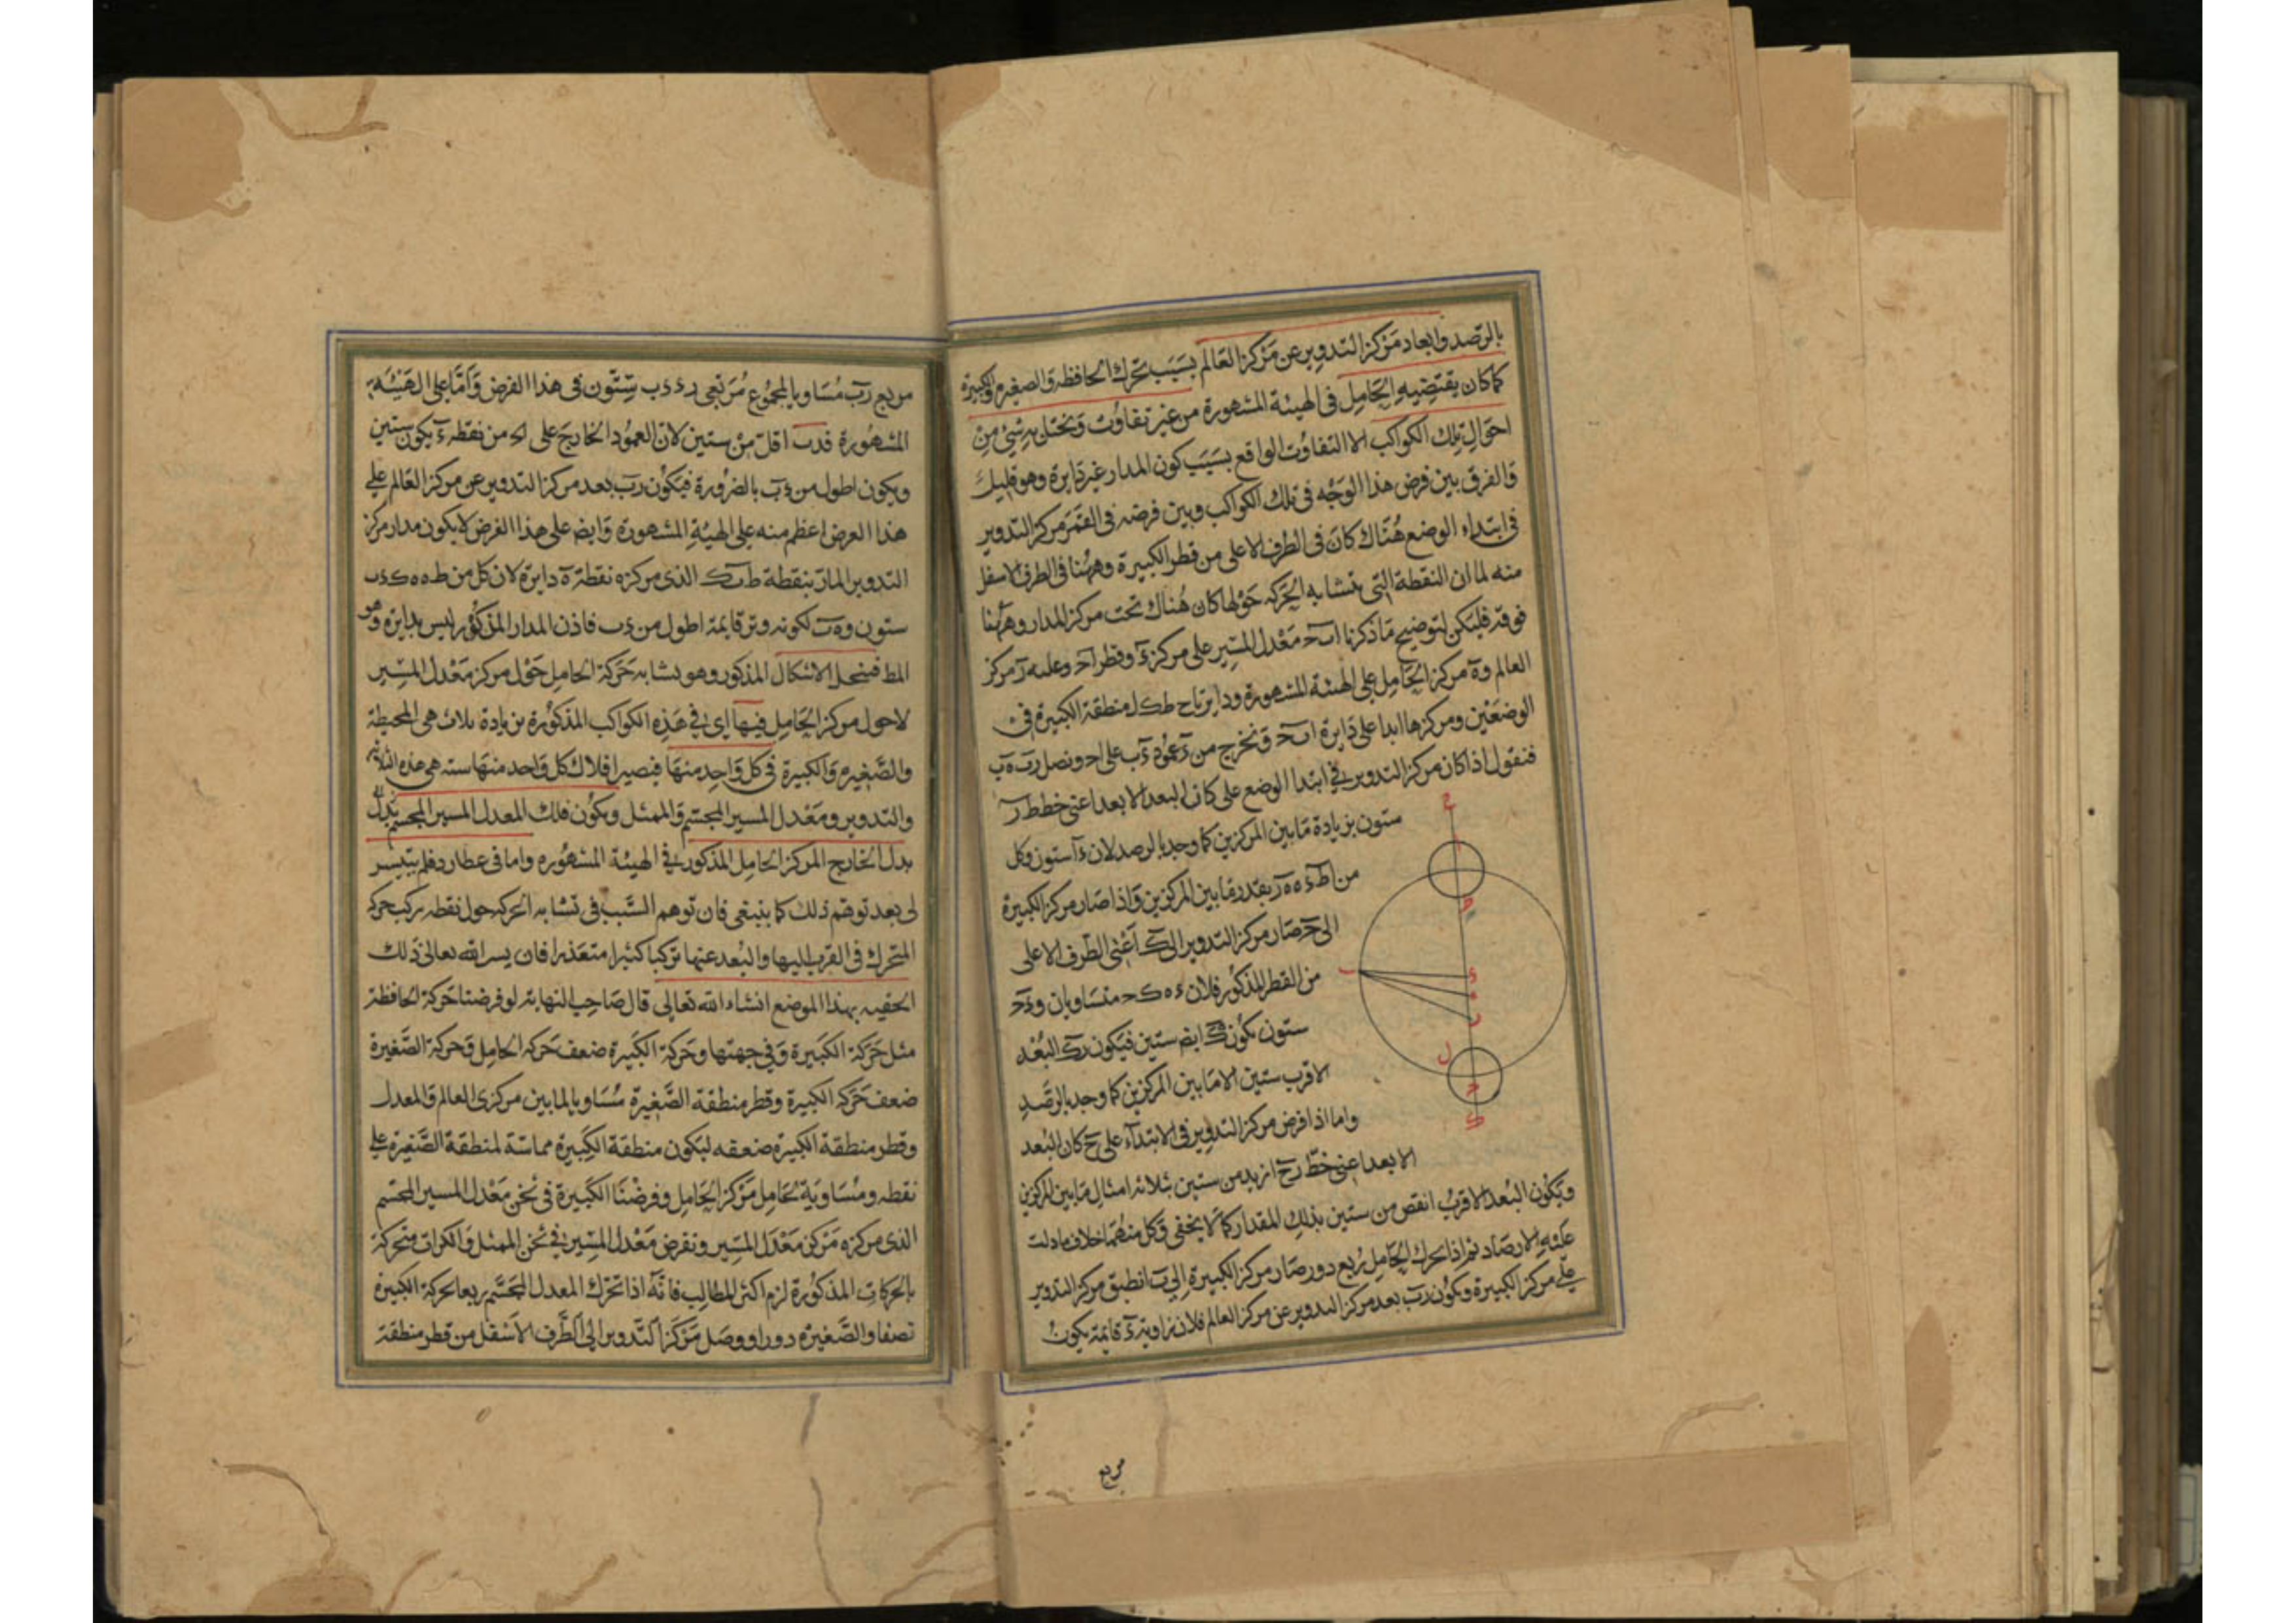 بالرّصد وابعاد مَرْكز التدوير عن مَرْكز العَالم بسَبَب تحرك الحافظة والصغيرة والكبيرة
كما كان يقتضيه الحَامِل فى الهيئة المشهورة من غير تفاوُت وَيختل به شئ مِنْ
احوَال تِلك الكواكب الا التفاوُت الواقع بسَبَب كون المدار غير دَايرة وهو قليل
وَالفرق بين فرض هذا الوَجْه فى تلك الكواكب وبين فرضه فى القمَر مركز التدوير
فى ابتداء الوضع هُنَاك كَانَ فى الطرف الاعلى من قطر الكبيرة وههُنا فى الطرف الاسفل
منه لما ان النقطة التى يتشابه الحَركة حَوْلها كان هُناك تحت مركز المدار وههُنا
فوقه فليكن لتوضيح مَا ذكرنا ا ب ح مَعْدل المسِير على مركز ء وقطر ا ح وعليه ر مركز
العالم و ه مركز الحَامِل على الهيئة المشهورة ودايرتا ح ط ك ل منطقة الكبيرة فى
الوضعَيْن ومركزها ابدا على دَايرة ا ب ح وَنخرج من ء عمُود ء ب على ا ح ونصل ر ب ه ب
فنقول اذا كان مركز التدوير فى ابتدا الوضع على ط كان البعد الابعد اعنى خط ط ر
ستون بزيادة مَا بين المركزين كما وجد بالرصد لان ء ا ستون وكل
من ا ط ء ه ه ر بقدر مَا بين المركزين وَاذا صَار مركز الكبيرة
الى ح صَار مركز التدوير الى ك اَعْنى الطّرف الاعلى
من القطر المذكُور فلان ء ه ك ح متسَاويان و ء ح
ستون يكون ه ك ايضا ستين فيكون ر ك البُعْد
الاقرب ستين الا مَا بين المركزين كما وجد بالرصَدِ
واما اذا فرض مركز التدوير فى الابتداء على ح كان البُعد
الابعد اعنى خطّ ر ح ازيد من ستين بثلاثة امثال مَا بين المركزين
وَيكُون البُعد الاقربُ انقص من ستين بذلِك المقدار كمَا لا يخفى وَكل منهُمَا خلاف ما دلت
عليهِ الارصَاد ثم اذا تحرك الحَامِل رُبع دور صَار مركز الكبيرة الى ب انطبق مركز التدوير
على مركز الكبيرة ويكُون ر ب بعد مركز التدوير عن مركز العالم فلان زاوية ء قائمة يكونُ
مربع
ح
ا
ط
ب
ء
ه
ر
ل
ح
ك
مربع ر ب مُسَاويا لمجمُوع مُربَّعى ر ء ء ب ستّون فى هذا الفرض وَاَمَّا على الهَيْئَة
المشهُورة فـ ء ب اقلّ منْ ستين لان العمُود الخارجَ على ا ح من نقطة ه يكون ستين
ويكون اطول من ء ب بالضرُورة فيكُون ر ب بعد مركز التدوير عن مركز العَالم على
هذا الفرض اعظم منه على الهيئةِ المشهورة وَايضا على هذا الفرض لا يكون مدار مركز
التدوير المارّ بنقطة ط ب ك الذى مركزه نقطة ه دايرة لان كل من ط ه ه ك ء ب
ستون و ه ب لكونه وتر قايمة اطول من ء ب فاذن المدار المذكُور ليس بدايرة وهُو
المط فينحل الاشكال المذكور وهو تشابه حَركة الحامِل حَوْل مركز مَعْدل المَسِير
لا حول مركز الحَامِل فيها اى فى هَذه الكواكب المذكُورة بزيادة ثلاث هى المحيطة
والصَّغيرة وَالكبيرة فى كل وَاحِد منهَا فيصير افلاك كل وَاحد منهَا ستة هى هذه الثلاثة
والتدوير ومَعْدل المسير المجسّم وَالممثل ويكُون فلك المعدل المسير المجسّم بَدل
بدل الخارج المركز الحامِل المذكور فى الهيئة المشهُورة واما فى عطارد فلم يتيسر
لى بعد توهّم ذلك كما ينبغى فان توهم السَّبب فى تشابه الحركة حول نقطة يركب حركة
المتحرك فى القرب اليها والبُعد عنها تركبا كثيرا متعذر فان يسر الله تعالى ذَلك
الحقته بهذا الموضع انشاء الله تعالى قال صَاحِب النهاية لو فرضنا حَركة الحافظة
مثل حَرَكة الكبيرة وَفى جهتها وحَركة الكبيرة ضعف حَركة الحامِل وَحركة الصَّغيرة
ضعف حَركة الكبيرة وقطر منطقة الصَّغيرة مُسَاويا لما بين مركزى العالم وَالمعدل
وقطر منطقة الكبيرة ضعفه ليَكون منطقة الكبيرة مماسّة لمنطقة الصَّغيرة على
نقطة ومُسَاوية لحَامِل مَرْكز الحَامِل وفرضْنَا الكبيرة فى ثخن مَعْدل المسير المجسّم
الذى مركزه مَرْكز مَعْدل المَسِير ونفرض مَعْدل المسِير فى ثخن الممثل وَالكرات متحركة
بالحركات المذكُورة لزم اكثر المطالِب فانّه اذا تحرّك المعدل المجسّم ربعا تحركت الكبيرة
نصفا والصَّغيرة دورا ووصَل مَرْكز التّدوير الى الطَّرف الاَسْفل من قطر منطقة